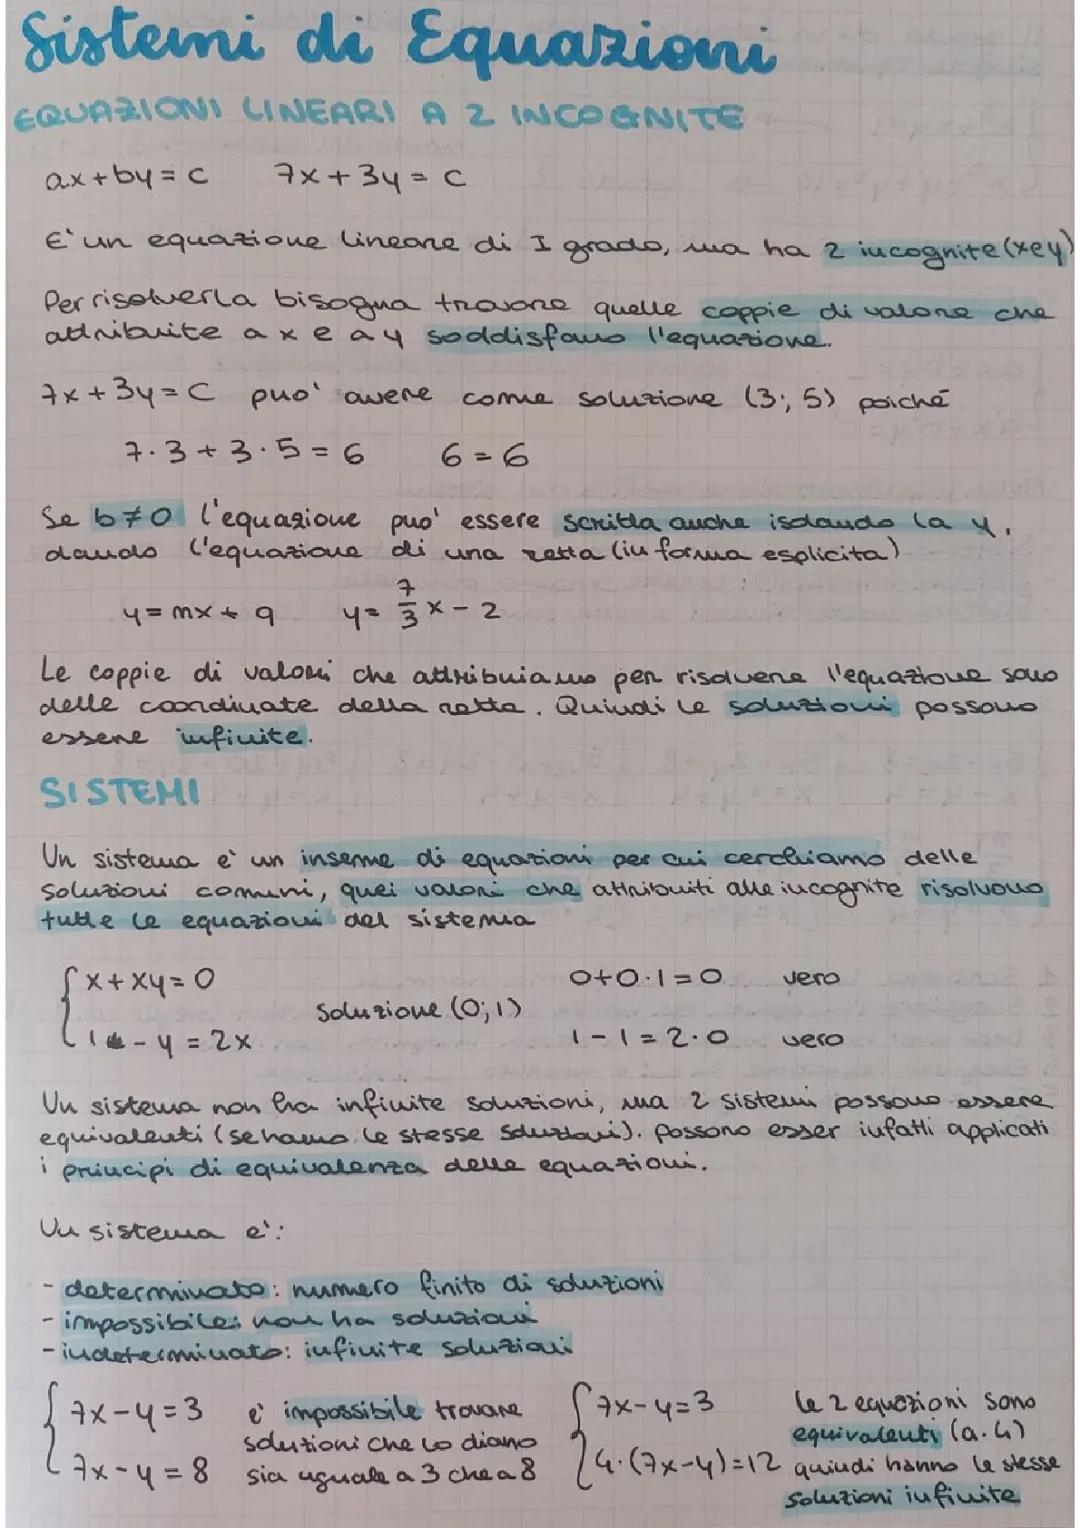 Sistemi di Equazioni
EQUAZIONI LINEARI A 2 INCOGNITE
ax+by=c 7x+3y=c
E' un equazione lineare di I grado, ma ha 2 incognite (x e y)
Per risolverla bisogna trovare quelle coppie di valore che
attribuite a x e a y soddisfano l'equazione.
7x+3y=C puo' avere come soluzione (3; 5) poiché
7·3+3·5=6 6=6
Se b≠0 l'equazione puo' essere scritta anche isolando la y,
dando l'equazione di una retta (in forma esplicita)
y=mx+q y=7/3 x-2
Le coppie di valori che attribuiamo per risolvere l'equazione sono
delle coordinate della retta. Quindi le soluzioni possono
essere infinite.
SISTEMI
Un sistema e' un insieme di equazioni per cui cerchiamo delle
soluzioni comuni, quei valori che attribuiti alle incognite risolvono
tutte le equazioni del sistema
{x+xy=0 0+0·1=0 vero
Soluzione (0;1)
1-y=2x 1-1=2·0 vero
Un sistema non ha infinite soluzioni, ma 2 sistemi possono essere
equivalenti (se hanno le stesse soluzioni). possono esser infatti applicati
i principi di equivalenza delle equazioni.
Un sistema e':
- determinato: numero finito di soluzioni
- impossibile: non ha soluzioni
- indeterminato: infinite soluzioni
{7x-y=3 e' impossibile trovare
soluzioni che lo diano
7x-y=8 sia uguale a 3 che a 8
{7x-y=3 le 2 equazioni sono
equivalenti (a·4)
4·(7x-y)=12 quindi hanno le stesse
soluzioni infinite